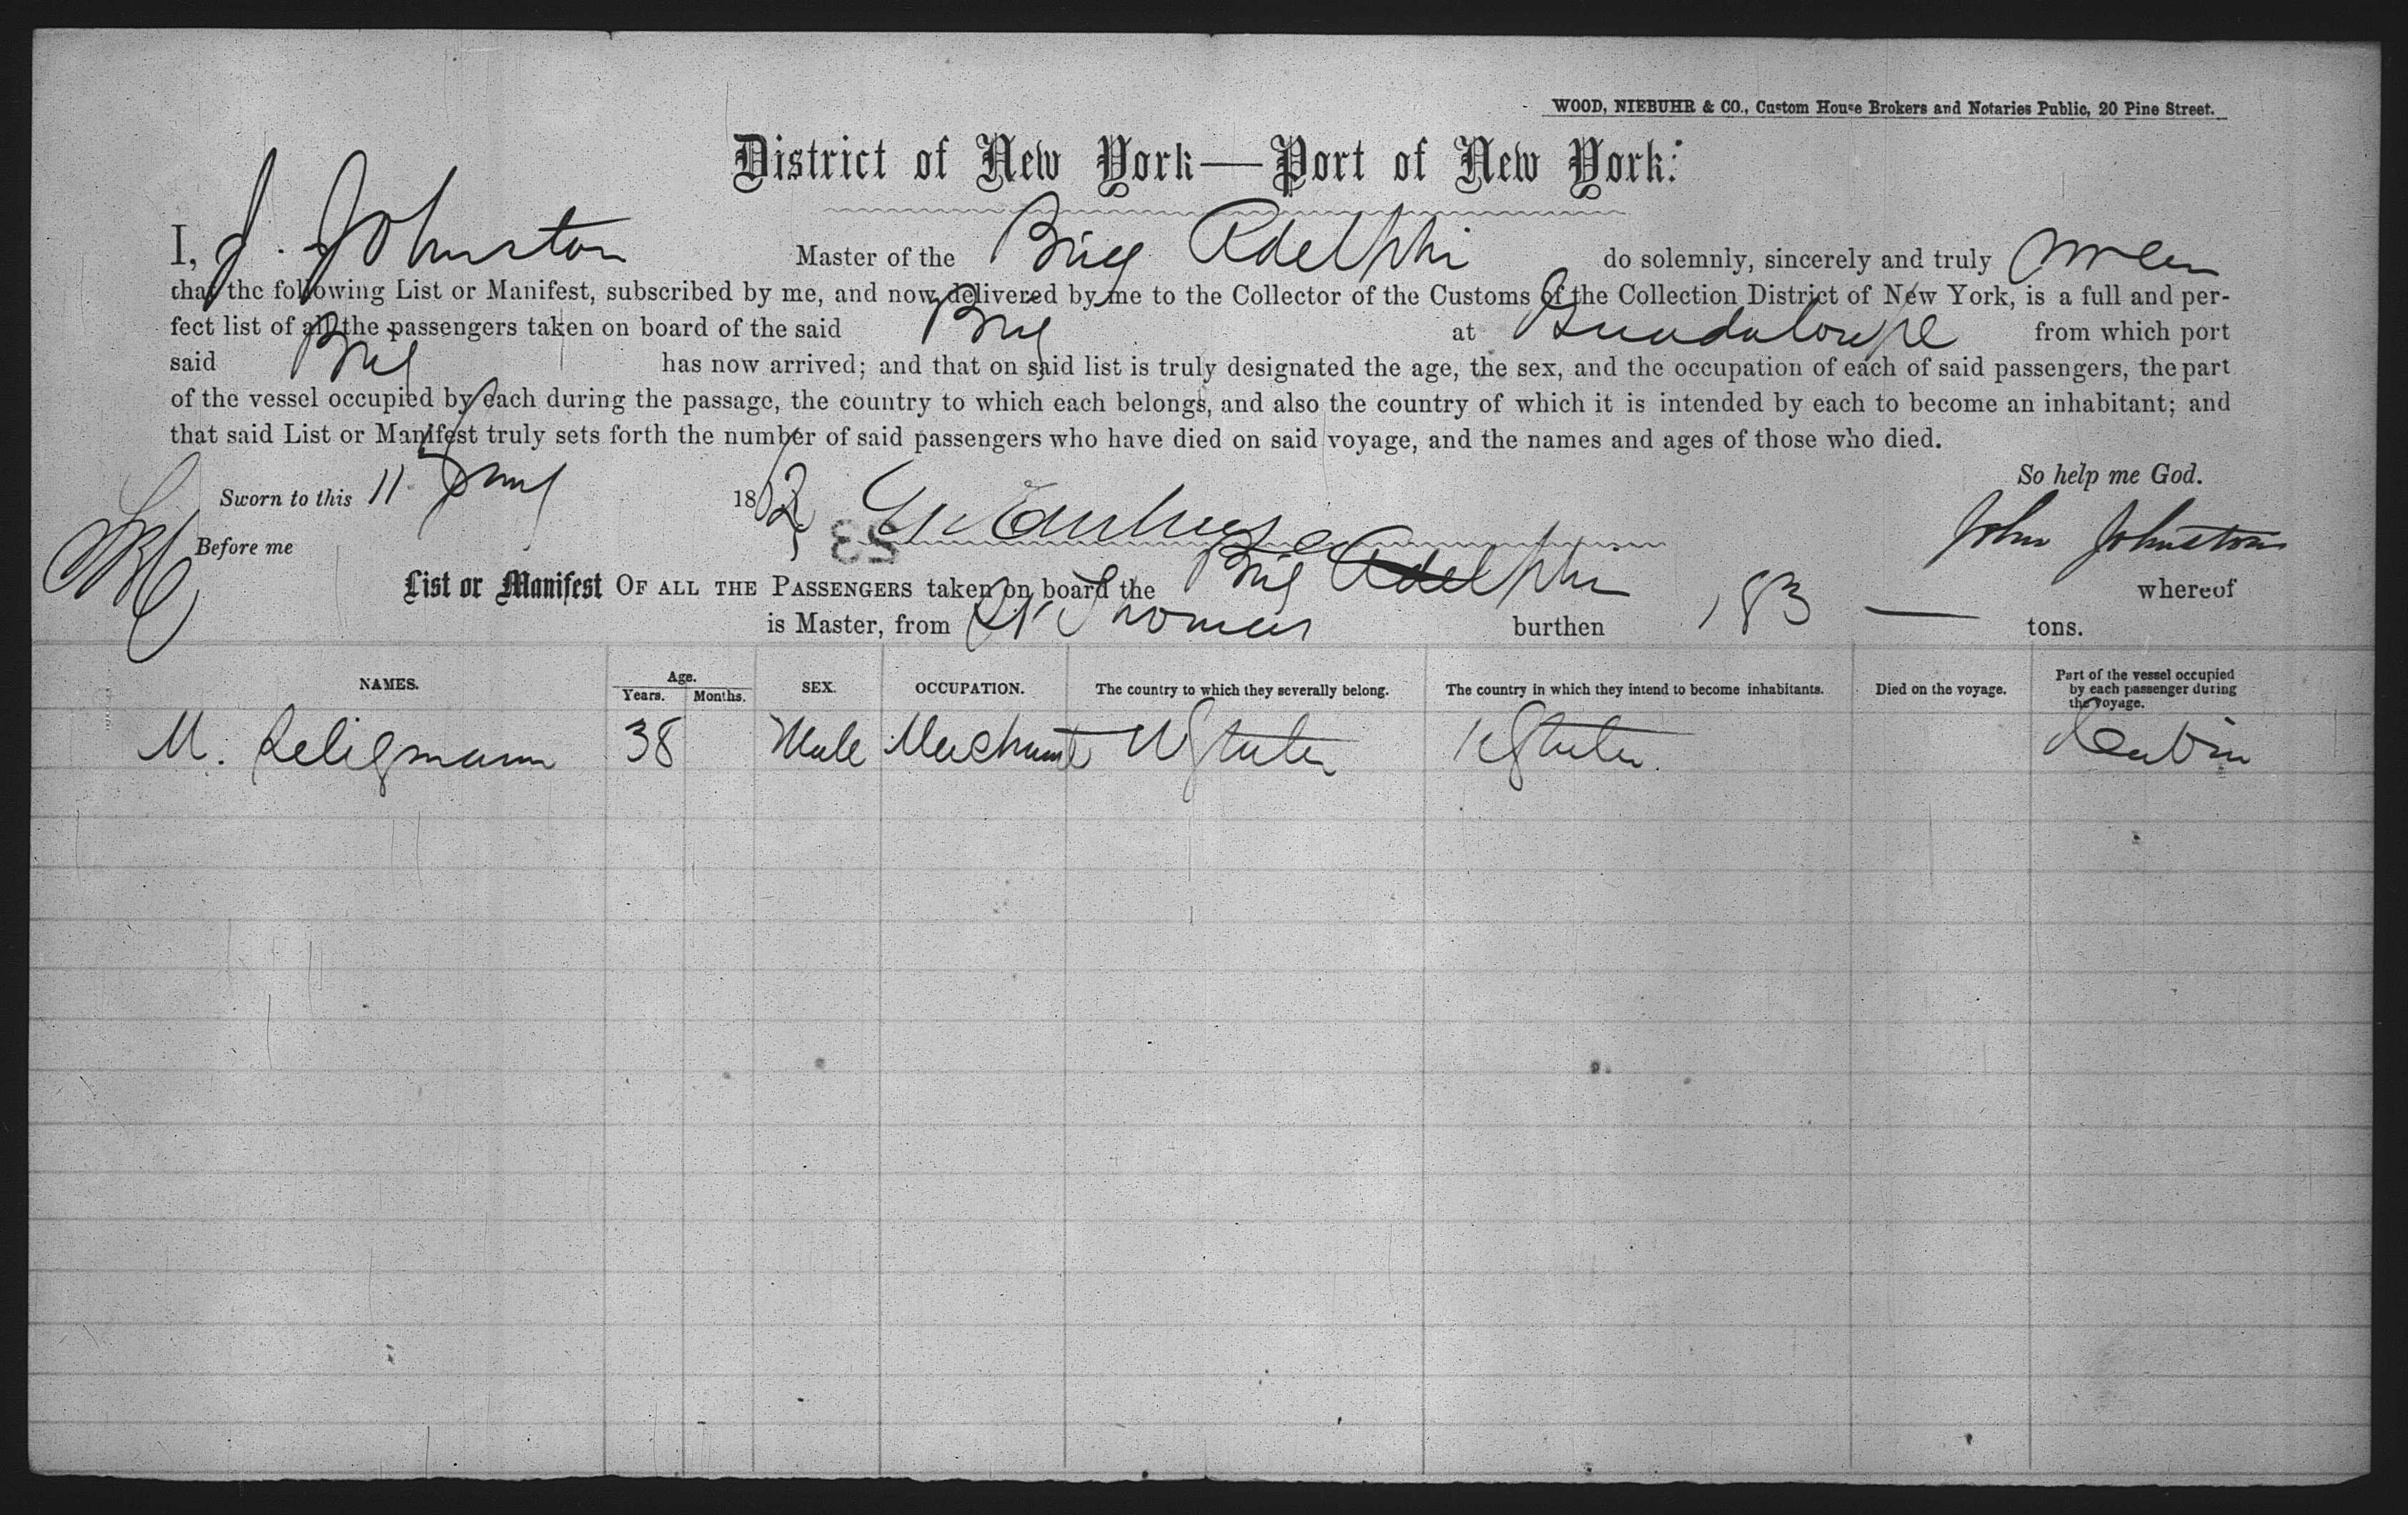 WOOD, NIEBUHR & CO., Custom House Brokers and Notaries Public, 20 Pine Street.
District of New York—Port of New York:
I, J. Johnston Master of the Brig Adelphi do solemnly, sincerely and truly swear
that the following List or Manifest, subscribed by me, and now delivered by me to the Collector of the Customs of the Collection District of New York, is a full and per-
fect list of all the passengers taken on board of the said Brig at Guadaloupe from which port
said Brig has now arrived; and that on said list is truly designated the age, the sex, and the occupation of each of said passengers, the part
of the vessel occupied by each during the passage, the country to which each belongs, and also the country of which it is intended by each to become an inhabitant; and
that said List or Manifest truly sets forth the number of said passengers who have died on said voyage, and the names and ages of those who died.
So help me God.
Sworn to this 11 1862
John Johnston
Before me
53
List or Manifest OF ALL THE PASSENGERS taken on board the Brig Adelphi whereof
is Master, from St Thomas burthen 183 — tons.
NAMES. Age. Years. Months. SEX. OCCUPATION. The country to which they severally belong. The country in which they intend to become inhabitants. Died on the voyage. Part of the vessel occupied by each passenger during the voyage.
M. Seligmann 38 Male Merchant U States U States Cabin